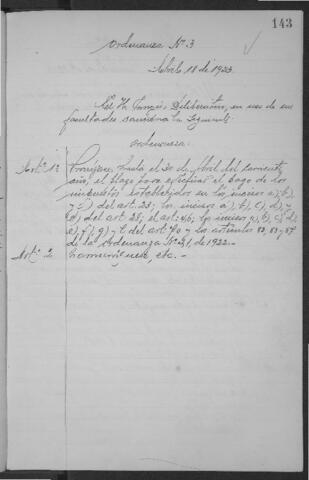 143
Ordenanza Nº 3
Abril 18 de 1923.
El H. Concejo Deliberativo, en uso de sus
facultades sanciona la siguiente
Ordenanza:
Artº 1º Prorrógase hasta el 30 de Abril del corriente
año, el plazo para efectuar el pago de los
impuestos establecidos en los incisos a), b),
y c) del art. 23; los incisos a), b), c), d), y
e) del art 28; el art. 46; los incisos a), b), c), d),
e), f), g) y h del art 70 y los artículos 82, 83 y 87
de la Ordenanza Nº 21, de 1922.-
Artº 2º Comuníquese, etc.-